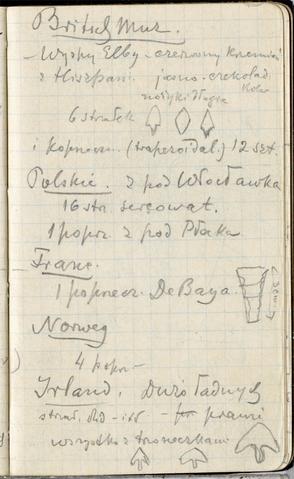 British Muz.
Wyspy Elby - czerwony krzemień
z Hiszpani. jasno-czekolad.
Kolor
nożyki długie
6 strzałek
i kopnecz. (trapezoidal.) 12 szt.
Polskie. z pod Włocławka
16 str. sercowat.
1 poprz. z pod Płocka
Franc.
1 poprzecz. De Baya.
3 cm.
Norweg
4 poprz-
Irland. Dużo ładnych
prawie
wszystko z trzoneczkami